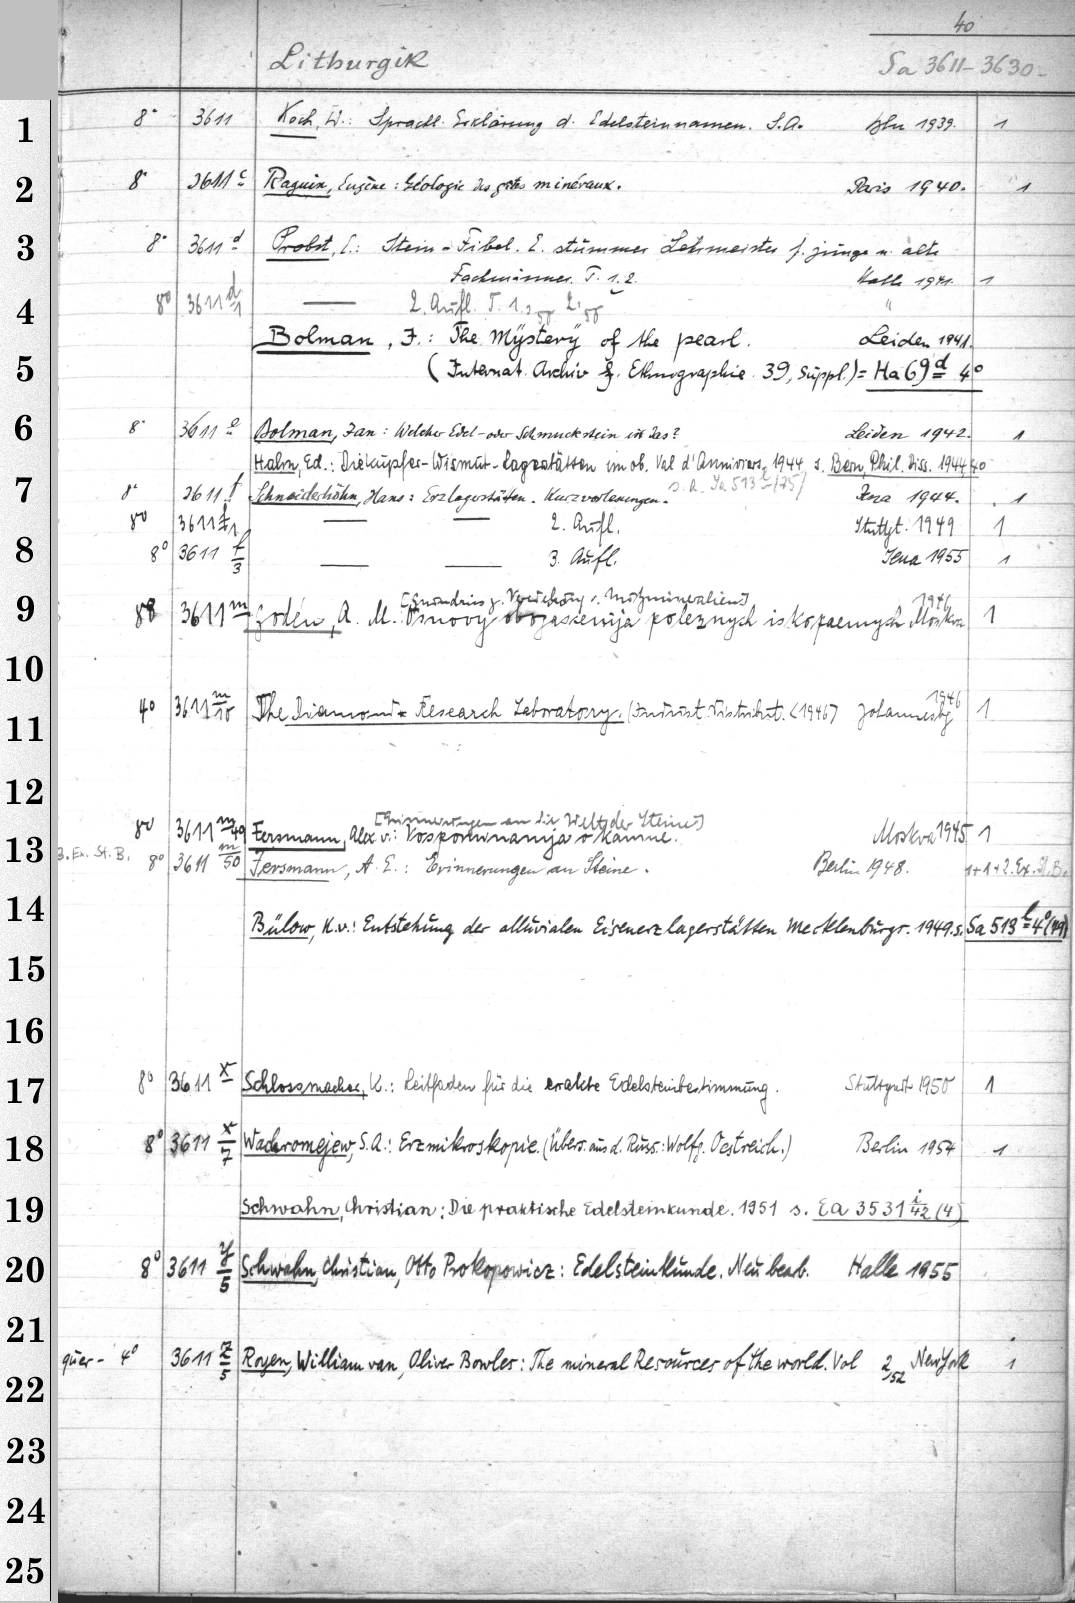 40
Lithurgik Sa 3611-3630
1 8° 3611 Koch, W.: Sprachl. Erklärung d. Edelsteinnamen. S.A. Bln 1939. 1
2 8° 3611 c Raguin, Eugène: Géologie des gîtes minéraux. Paris 1940. 1
3 8° 3611 d Probst, E.: Stein-Fibel. E. stummer Lehrmeister f. junge u. alte
Fachmänner. T. 1. 2. Halle 1941. 1
4 8° 3611 d/1 —— 2. Aufl. T. 1,50 2,50 "
Bolman, J.: The Mystery of the pearl. Leiden 1941.
5 (Internat. Archiv f. Ethnographie. 39, Suppl.) = Ha 69 d 4°
6 8° 3611 e Bolman, Jan: Welcher Edel- oder Schmuckstein ist das? Leiden 1942. 1
Hahn, Ed.: Die Kupfer-Wismut-Lagerstätten im ob. Val d'Anniviers, 1944 s. Bern, Phil. Diss. 1944, 40
s. a. Sa 513 /75/
7 8° 3611 f Schneiderhöhn, Hans: Erzlagerstätten. Kurzvorlesungen. Jena 1944. 1
8° 3611 f/1 —— —— 2. Aufl. Stuttgt. 1949 1
8 8° 3611 f/3 —— —— 3. Aufl. Jena 1955 1
[Grundriss z. Nutzmineralien]
9 8° 3611 m Godén, A. M.: Osnovy obogaščenija poleznych iskopaemych Moskva 1946 1
10
11 4° 3611 m/10 The Diamond Research Laboratory. (Indust. Distribut. (1946) Johannesbg 1946 1
12
[Erinnerungen an die Welt der Steine]
8° 3611 m/49 Fersmann, Alex v.: Vospominanija o kamne. Moskva 1945 1
13 3. Ex. St. B. 8° 3611 m/50 Fersmann, A. E.: Erinnerungen an Steine. Berlin 1948. 1+1+2. Ex. St. B.
14 Bülow, K. v.: Entstehung der alluvialen Eisenerzlagerstätten Mecklenburgs. 1949. s. Sa 513 l 4° (79)
15
16
17 8° 3611 x Schlossmacher, K.: Leitfaden für die exakte Edelsteinbestimmung. Stuttgart 1950 1
18 8° 3611 x/7 Wachromejew, S.A.: Erzmikroskopie. (Übers. aus d. Russ.: Wolfg. Oestreich.) Berlin 1954 1
19 Schwahn, Christian: Die praktische Edelsteinkunde. 1951 s. Ea 3531 i/42 (4)
20 8° 3611 y/5 Schwahn, Christian, Otto Prokopowicz: Edelsteinkunde. Neu bearb. Halle 1955
21
22 quer-4° 3611 z/5 Royen, William van, Oliver Bowles: The mineral Resources of the world. Vol 2,52 New York 1
23
24
25